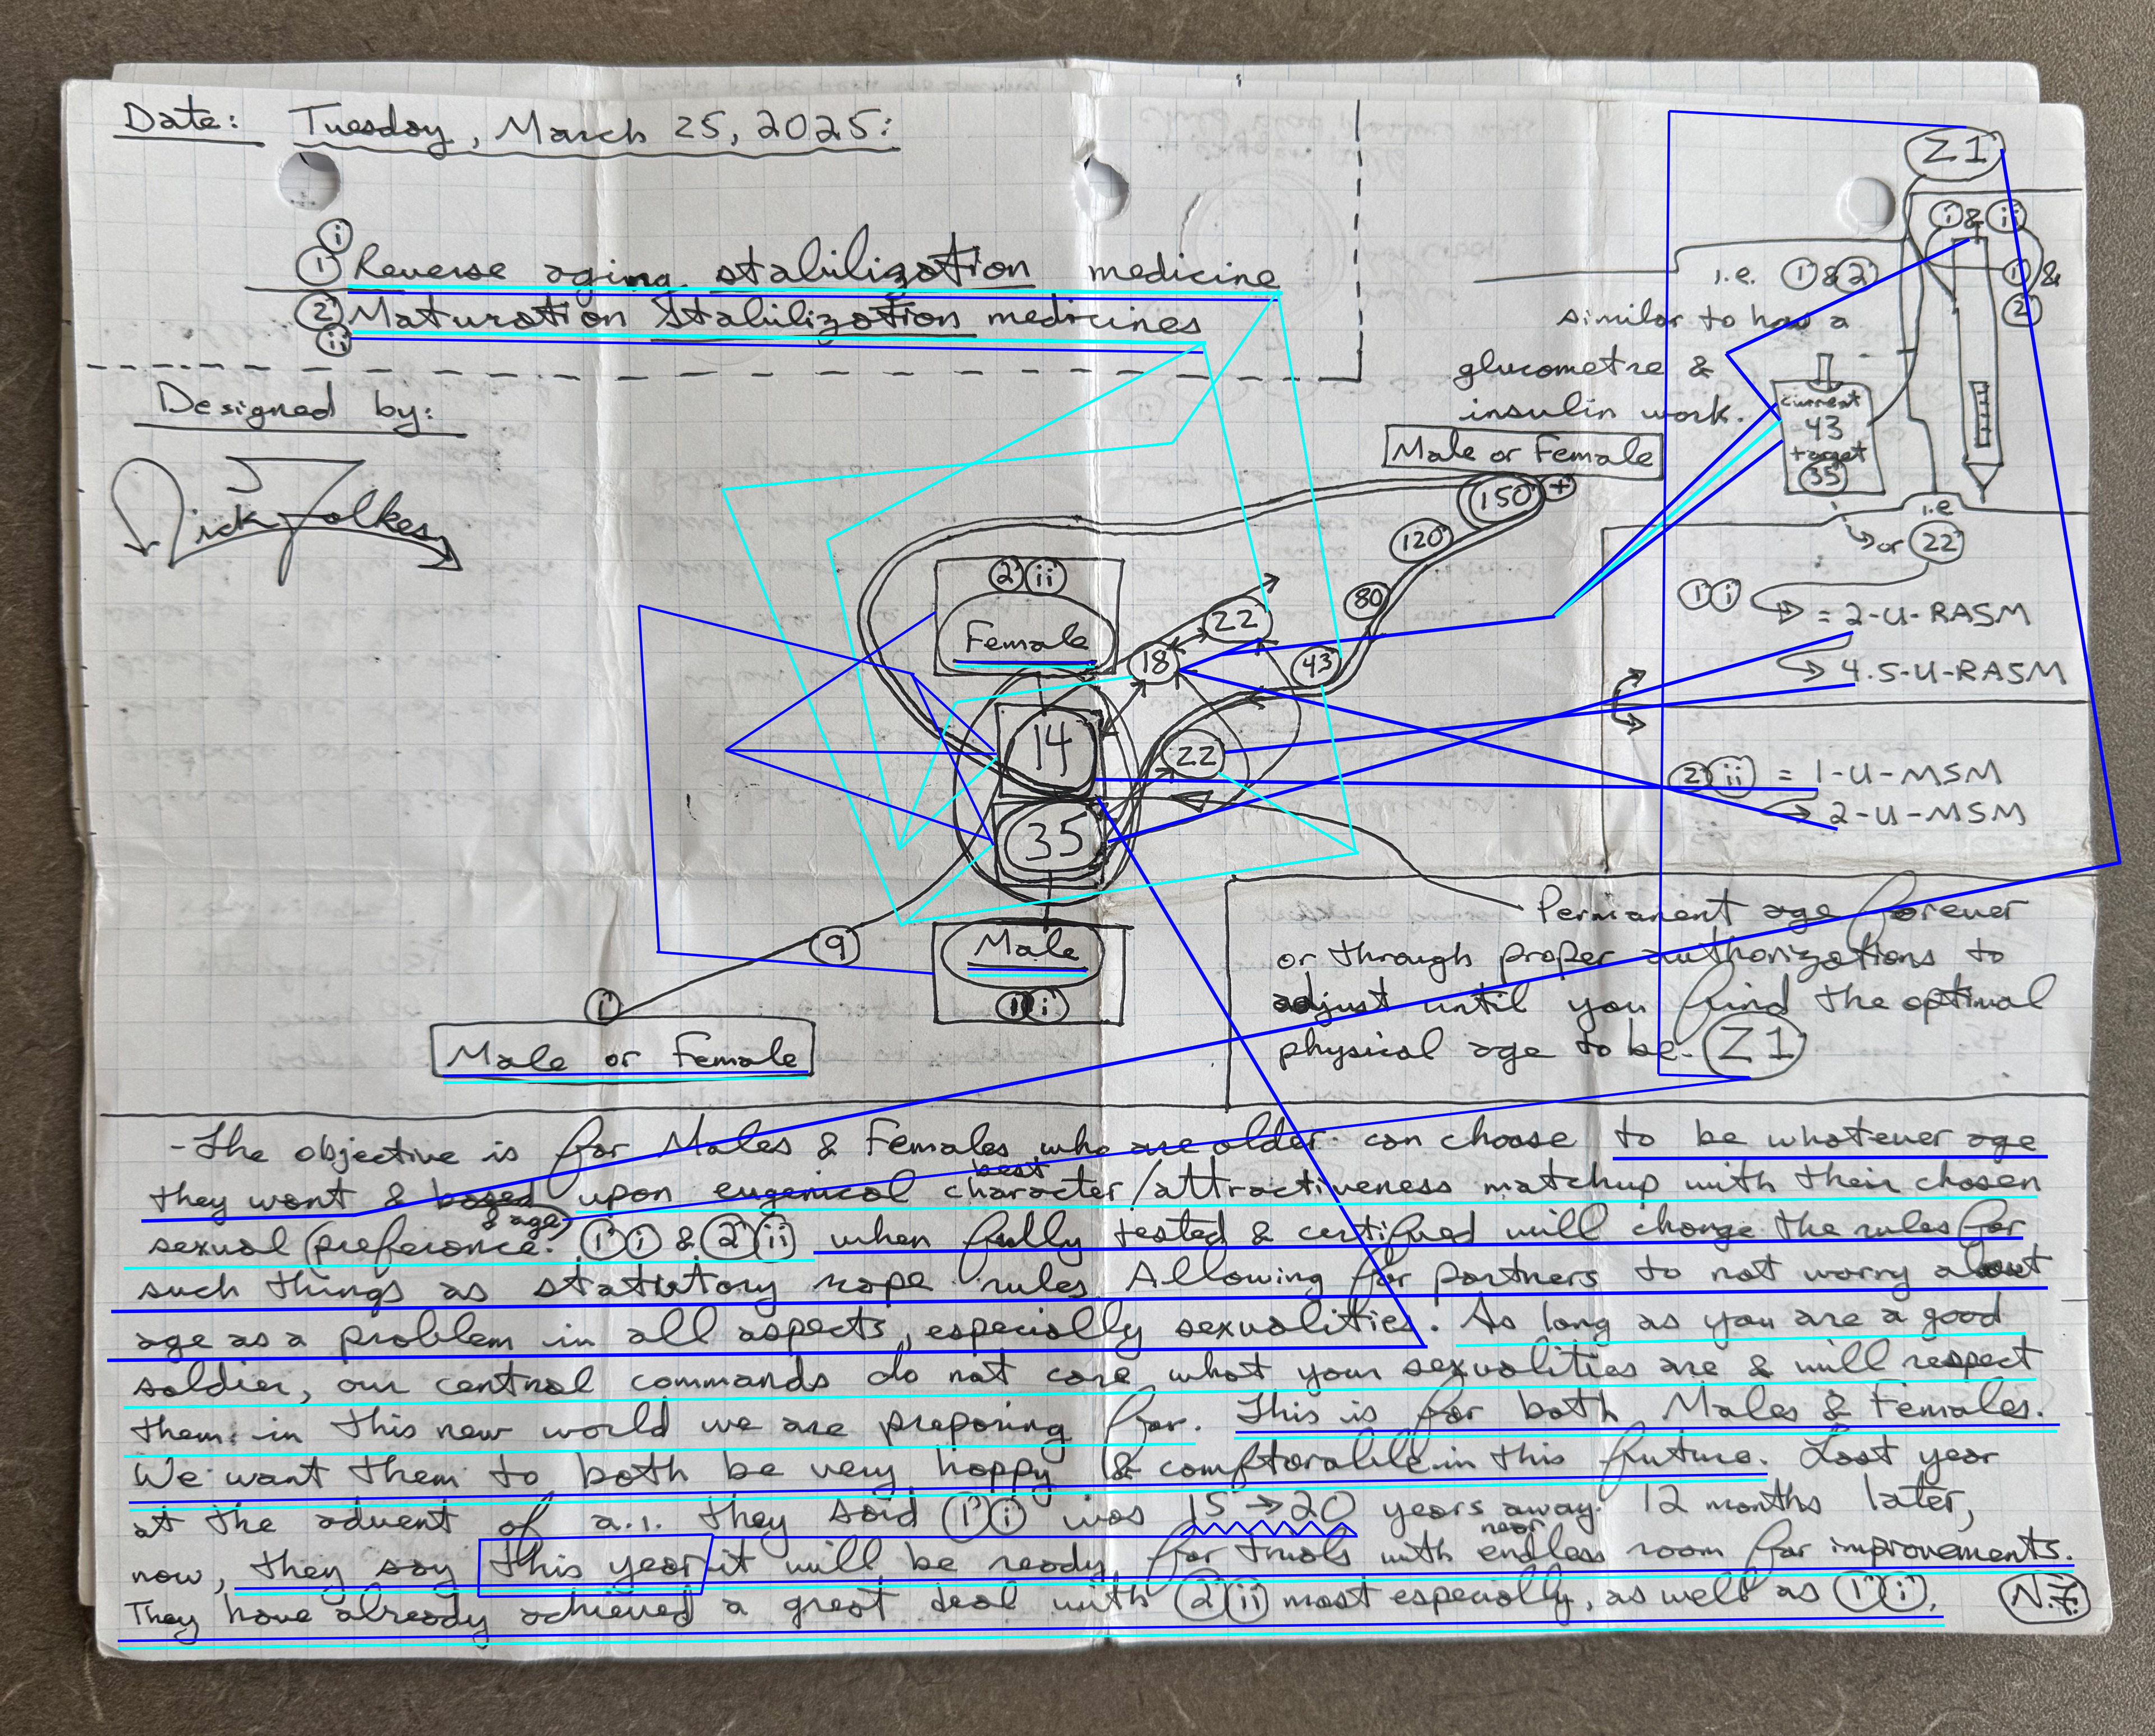 Date: Tuesday, March 25, 2025:
i
1 Reverse aging stabilization medicine
2 Maturation Stabilization medicines
ii
Designed by:
Nick Folkes
Z1
i & ii
i.e. 1 & 2
1 &
2
similar to how a
glucometre &
insulin work.
current
43
target
35
i.e
or 22
Male or Female
150 +
120
80
43
2 ii
Female
22
18
14
22
35
9
i
Male
1 i
Male or Female
1 i = 2-U-RASM
4.5-U-RASM
2 ii = 1-U-MSM
2-U-MSM
Permanent age forever
or through proper authorizations to
adjust until you find the optimal
physical age to be. Z1
-The objective is for Males & Females who are older can choose to be whatever age
best
they want & based upon eugenical character/attractiveness matchup with their chosen
& age
sexual (preference. 1 i & 2 ii when fully tested & certified will change the rules for
such things as statutory rape rules. Allowing for partners to not worry about
age as a problem in all aspects, especially sexualities. As long as you are a good
soldier, our central commands do not care what your sexualities are & will respect
them in this new world we are preparing for. This is for both Males & Females.
We want them to both be very happy & comftorable in this future. Last year
at the advent of a.i. they said 1 i was 15 → 20 years away. 12 months later,
near
now, they say this year it will be ready for trials with endless room for improvements.
They have already achieved a great deal with 2 ii most especially, as well as 1 i. N.F.